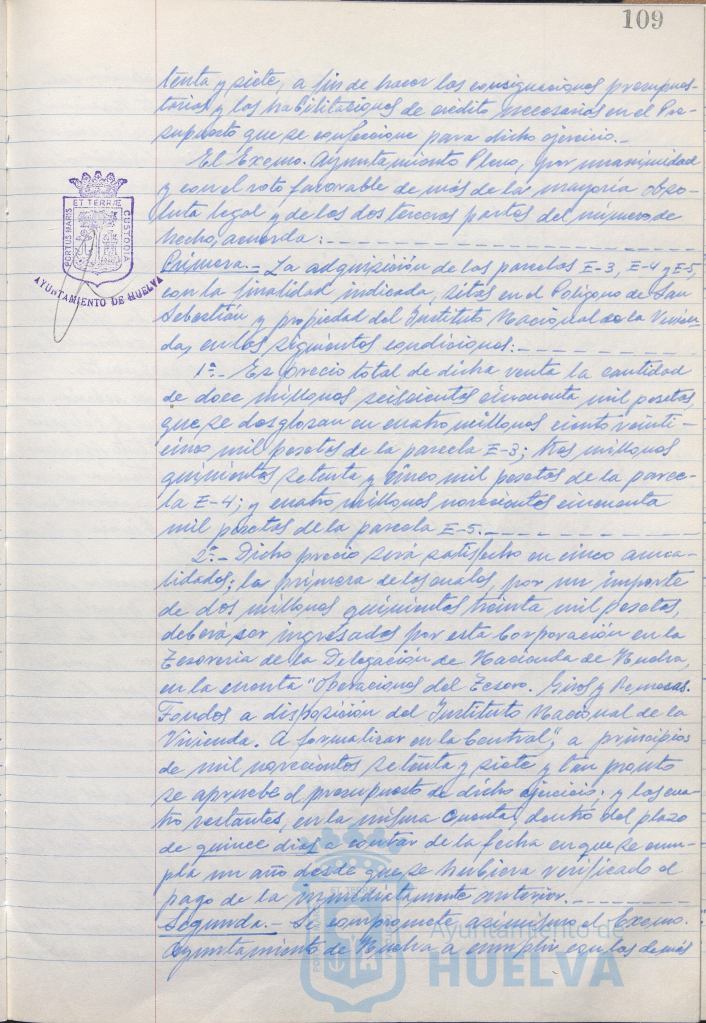 109
tenta y siete, a fin de hacer las consignaciones presupues-
tarias y las habilitaciones de crédito necesarias en el Pre-
supuesto que se confeccione para dicho ejercicio.-
El Excmo. Ayuntamiento Pleno, por unanimidad
y con el voto favorable de más de la mayoría abso-
luta legal y de las dos terceras partes del número de
hecho, acuerda:
Primera.- La adquisición de las parcelas E-3, E-4 y E-5,
con la finalidad indicada, sitas en el Polígono de San
Sebastián y propiedad del Instituto Nacional de la Vivien-
da, en las siguientes condiciones:
1ª.- Es precio total de dicha venta la cantidad
de doce millones seiscientas cincuenta mil pesetas,
que se desglosan en cuatro millones ciento veinti-
cinco mil pesetas de la parcela E-3; tres millones
quinientas setenta y cinco mil pesetas de la parce-
la E-4; y cuatro millones novecientas cincuenta
mil pesetas de la parcela E-5.
2ª.- Dicho precio será satisfecho en cinco anua-
lidades; la primera de las cuales, por un importe
de dos millones quinientas treinta mil pesetas,
deberá ser ingresados por esta Corporación en la
Tesorería de la Delegación de Hacienda de Huelva,
en la cuenta "Operaciones del Tesoro. Giros y Remesas.
Fondos a disposición del Instituto Nacional de la
Vivienda. A formalizar en la Central", a principios
de mil novecientos setenta y siete y tan pronto
se apruebe el presupuesto de dicho ejercicio; y las cua-
tro restantes, en la misma cuenta, dentro del plazo
de quince días a contar de la fecha en que se cum-
pla un año desde que se hubiera verificado el
pago de la inmediatamente anterior.
Segunda.- Se compromete asimismo el Excmo.
Ayuntamiento de Huelva a cumplir con las demás
PORTUS MARIS ET TERRÆ CUSTODIA
AYUNTAMIENTO DE HUELVA
Ayuntamiento de
HUELVA